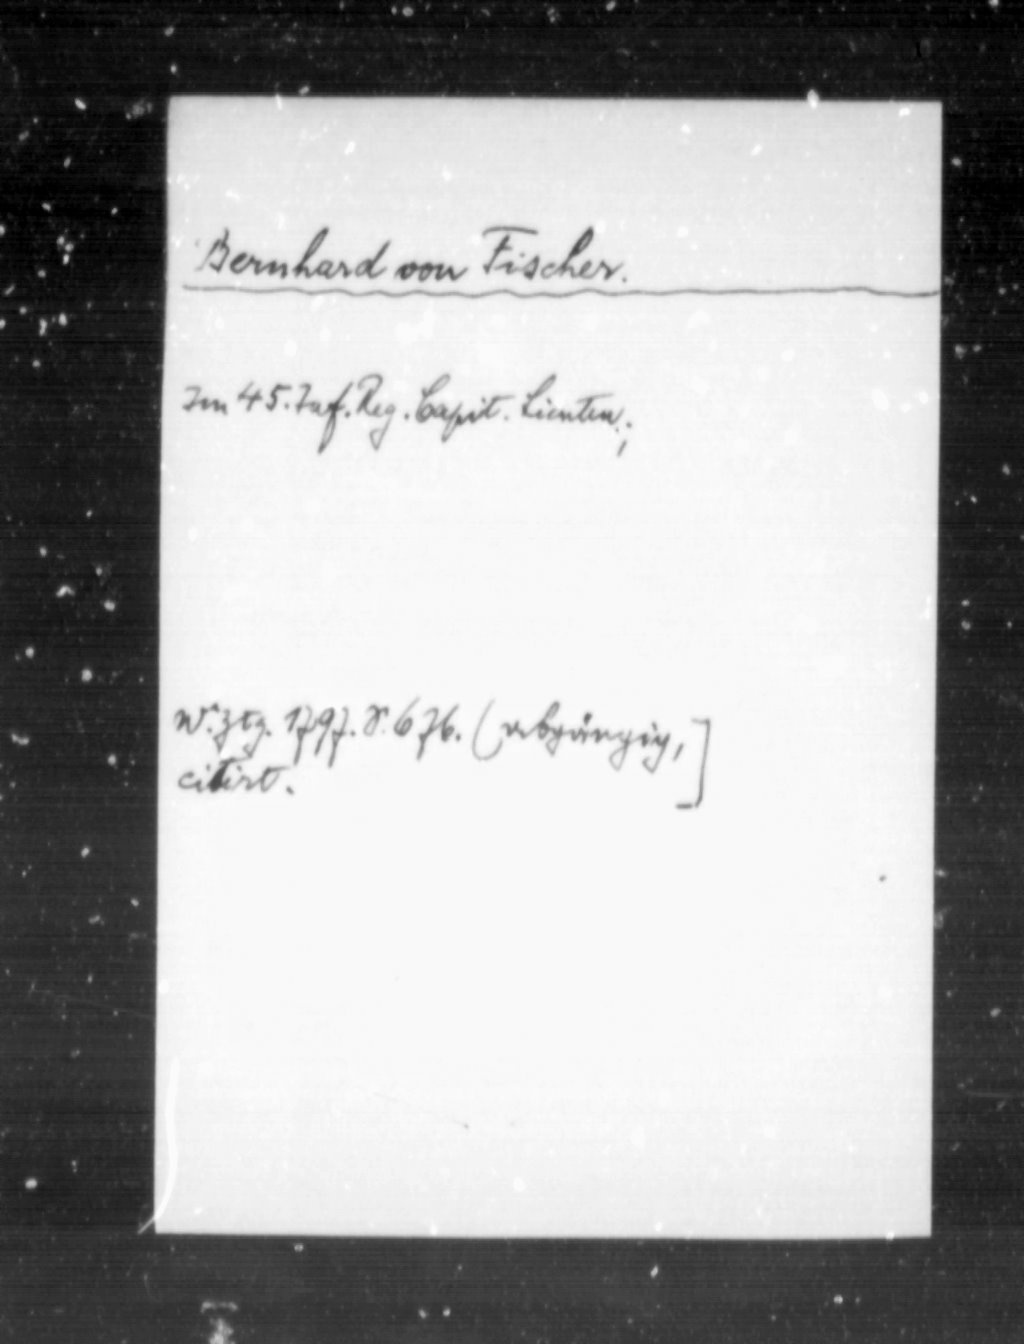 Bernhard von Fischer.
Im 45. Inf. Reg. Capit. Lieuten.;
W. Ztg. 1797. S. 676. (abgängig,]
citirt.